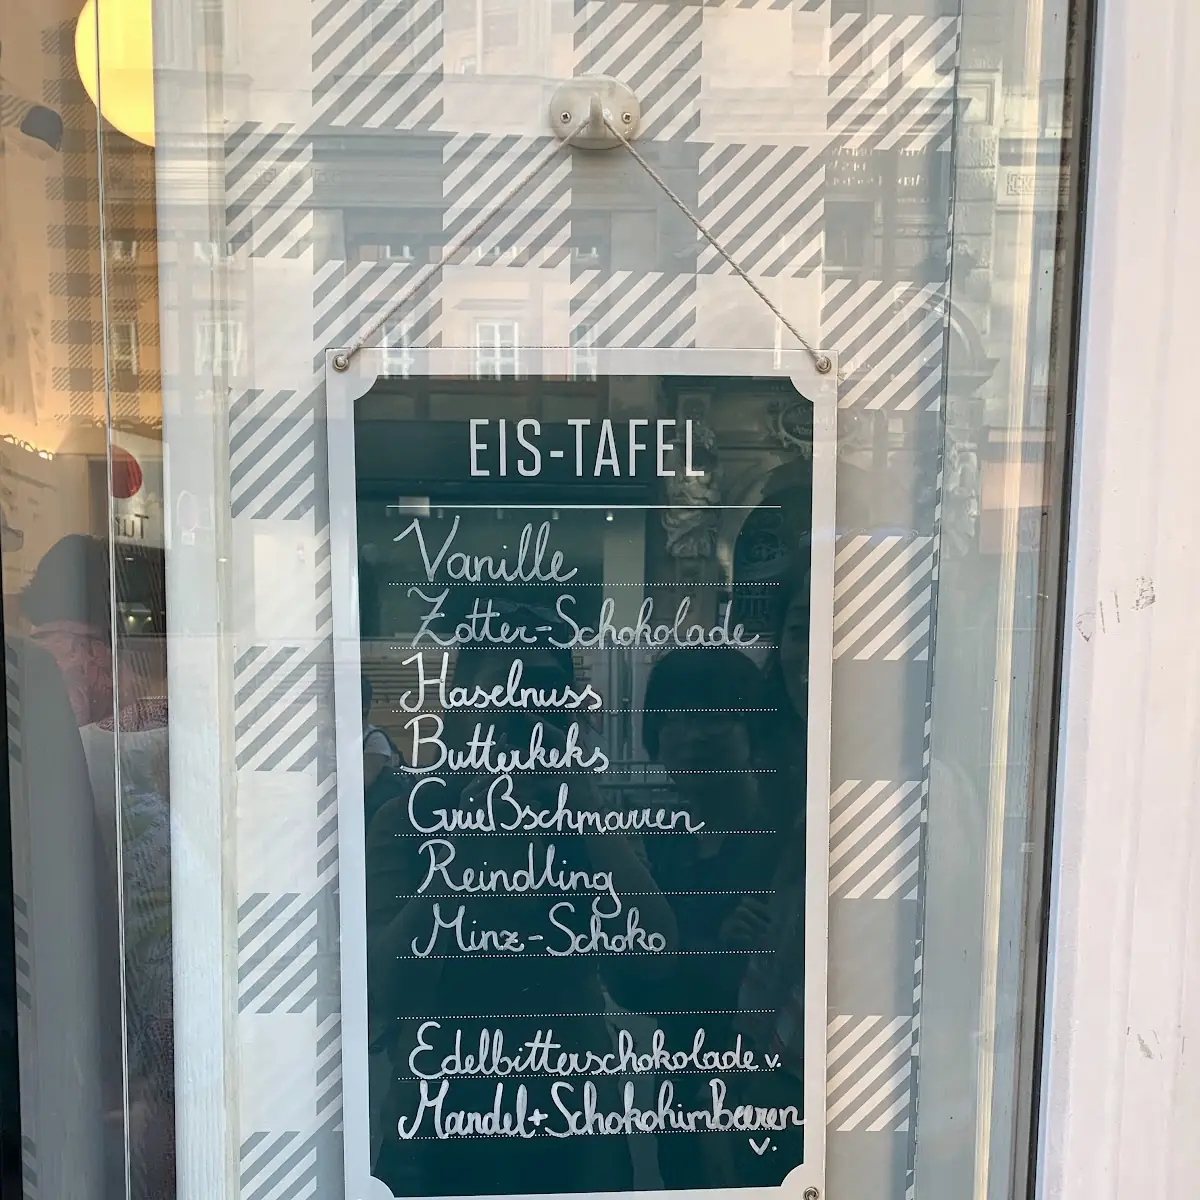 EIS-TAFEL
Vanille
Zotter-Schokolade
Haselnuss
Butterkeks
Grießschmarren
Reindling
Minz-Schoko
Edelbitterschokolade v.
Mandel+Schokohimbeeren
v.